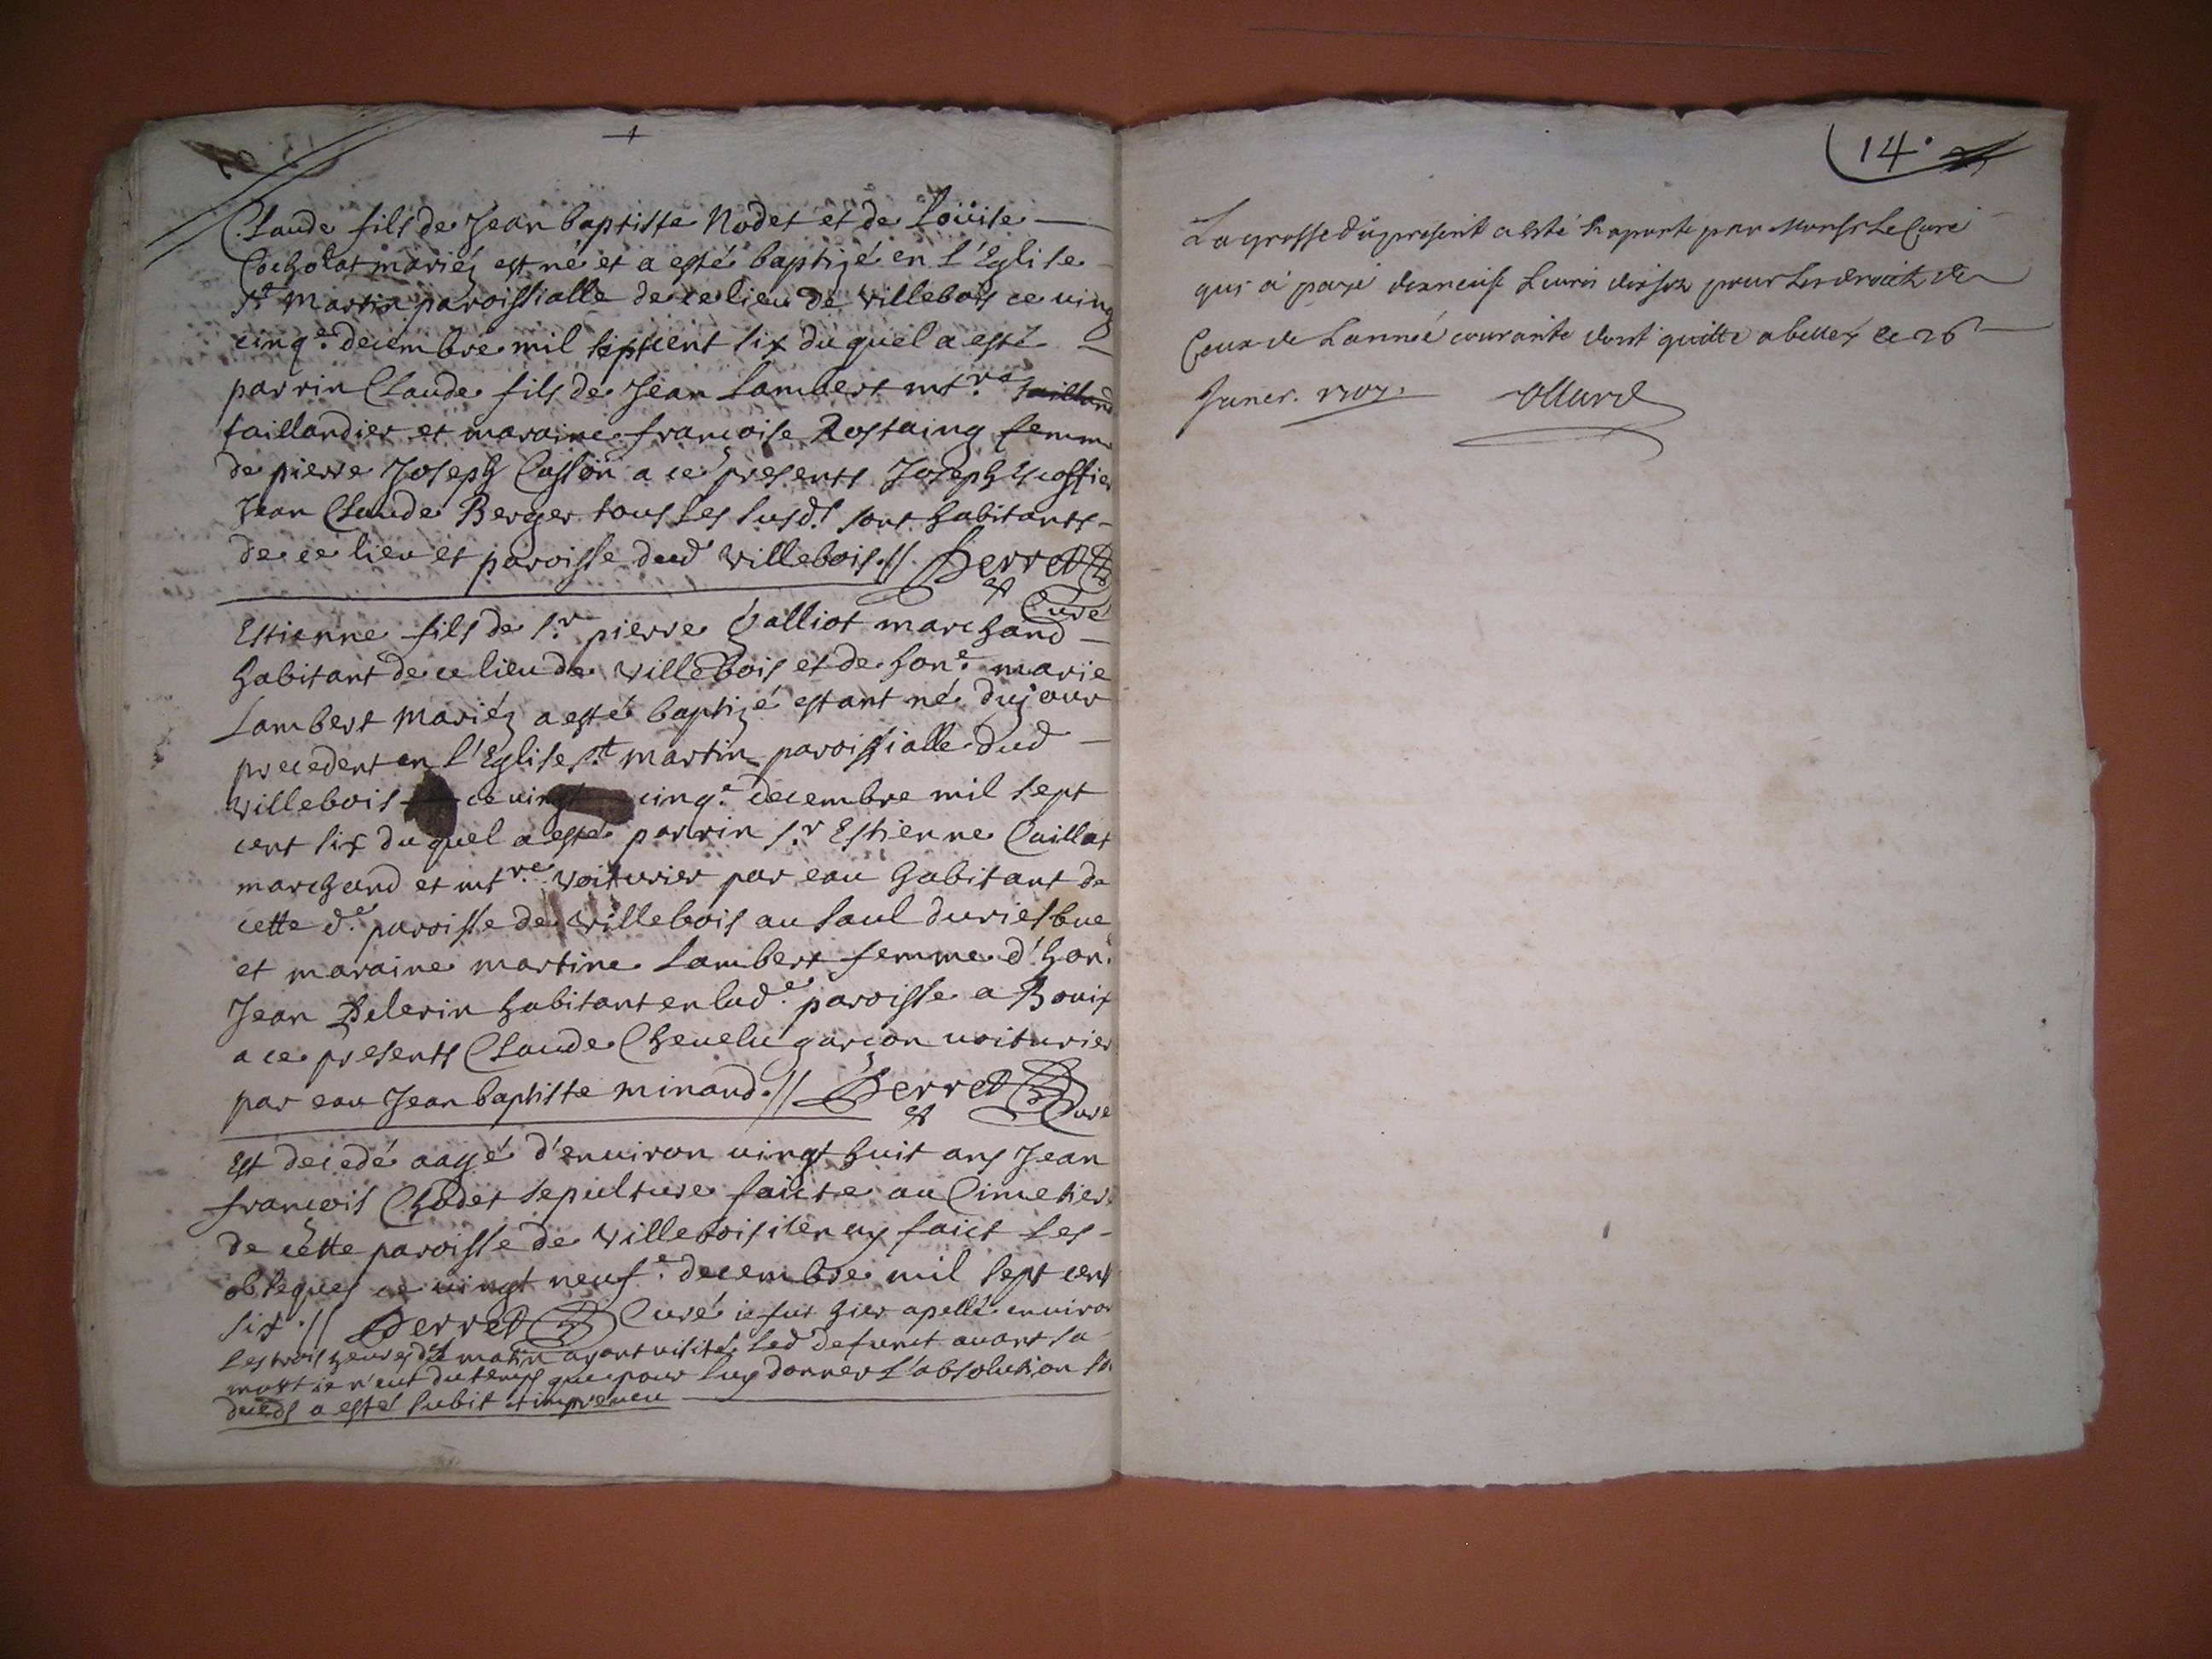 Claude fils de Jean baptiste Nodet et de Loüise
Cocholat mariéz est né et a esté baptizé en l'Eglise
st Martin paroissialle de ce lieu de villebois ce uing
cinq.e decembre mil sept cent six duquel a esté
parrin Claude fils de Jean Lambert mt.re
taillandier et maraine francoise Rostaing femme
de pierre Joseph Casson a ce presents Joseph Escoffier
Jean Claude Berger tous les susd.s sont habitants
de ce lieu et paroisse dud villebois.// Perret
Curé
Estienne fils de s.r pierre Galliot marchand
habitant de ce lieu de villebois et de hon.e marie
Lambert mariéz a esté baptizé estant né du jour
precedent en l'Eglise st martin paroissialle dud
villebois ce uingt cinq.e decembre mil sept
cent six duquel a esté parrin s.r Estienne Caillat
marchand et mt.re voiturier par eau habitant de
cette d.e paroisse de villebois au Saul
et maraine martine Lambert femme d'hon.
Jean Pelerin habitant en lad.e paroisse a Bouis
a ce presents Claude Chevelu garcon voiturier
par eau Jean baptiste minand.// Perret
Curé
Est decedé aagé d'environ vingt huit ans Jean
francois Chodet sepulture faicte au Cimetier
de cette paroisse de villebois i'en ay faict les
obseques ce uingt neuf.e decembre mil sept cent
six.// Perret Curé ie fus hier apellé environ
les trois heures du matin ayant visité led defunct auant sa
mort ie n'eut du temps que pour luy donner l'absolution sa
deceds a esté subit et impreueu
14.
La grosse du present a esté raporté par Monsr Le Curé
qui a payé Liures dix sols pour les droits de
Ceux de L'année courante dont quitte a belley ce 26
Janer. 1707. Ollard